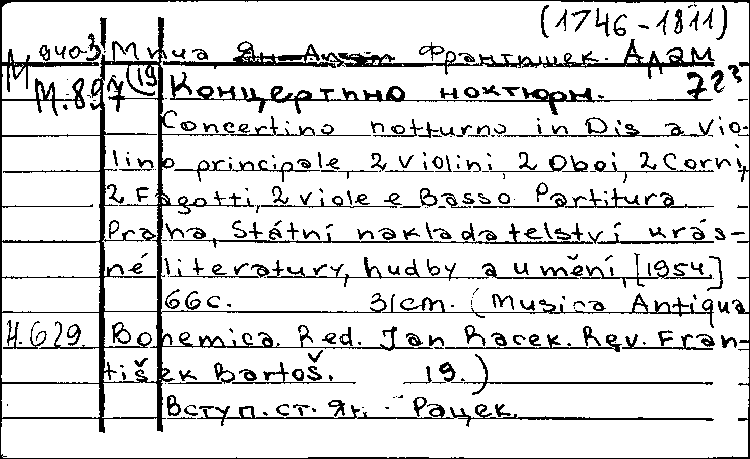 (1746-1811)
Мича, Франтишек. Адам
М.897 (19) Концертино ноктюрн. 723
Concertino notturno in Dis a vio-
lino principale, 2 Violini, 2 Oboi, 2 Corni,
2 Fagotti, 2 viole e Basso. Partitura.
Praha, Státní nakladatelství krás-
né literatury, hudby a umění, [1954.]
66c. 31cm. (Musica Antiqua
H.629. Bohemica. Red. Jan Racek. Rev. Fran-
tišek Bartoš. 19.)
Вступ. ст. Ян. Рацек.